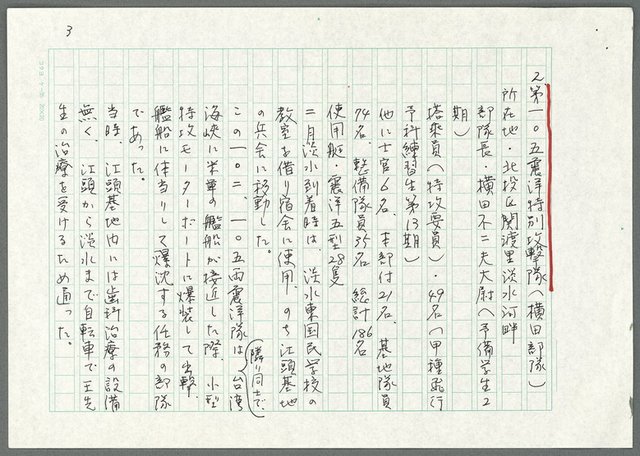 3
2 第一〇五震洋特別攻撃隊(横田部隊)
所在地・北投区関渡里淡水河畔
部隊長・横田不二夫大尉(予備学生2
期)
搭乗員(特攻要員)・49名(甲種飛行
予科練習生第13期)
他に士官6名、本部付21名、基地隊員
74名、整備隊員35名 総計186名
使用艇・震洋五型28隻
二月淡水到着時は、淡水東国民学校の
教室を借り宿舎に使用、のち江頭基地
の兵舎に移動した。
この一〇二、一〇五両震洋隊は(隣り同士で、)台湾
海峡に米軍の艦船が接近した際、小型
特攻モーターボートに爆装して出撃、
艦船に体当りして爆沈する任務の部隊
であった。
当時、江頭基地内には歯科治療の設備
無く、江頭から淡水まで自転車で王先
生の治療を受けるため通った。